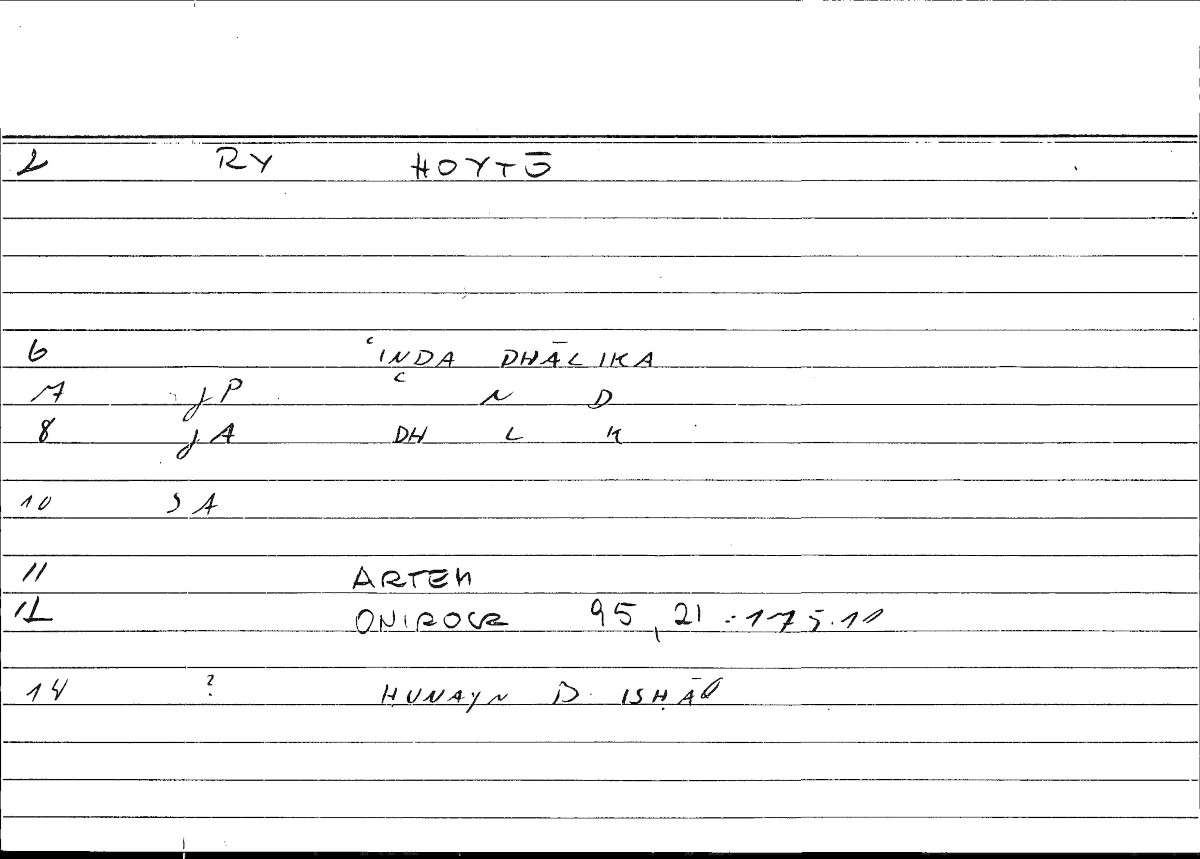 2 RY HOYTŌ
6 ʿINDA DHĀLIKA
7 JP ʿ N D
8 JA DH L K
10 SA
11 ARTEM
12 ONIROCR 95,21 : 175.10
14 ? ḤUNAYN B. ISḤĀQ